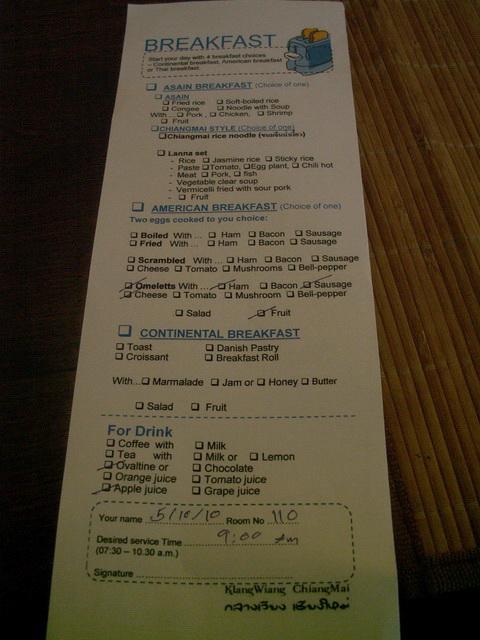 BREAKFAST
Start your day with 4 breakfast choices
– Continental breakfast, American breakfast
or Thai breakfast.
ASAIN BREAKFAST (Choice of one)
ASAIN
Fried rice Soft-boiled rice
Congee Noodle with Soup
With ... Pork, Chicken, Shrimp
Fruit
CHIANGMAI STYLE (Choice of one)
Chiangmai rice noodle
Lanna set
- Rice Jasmine rice Sticky rice
- Paste Tomato, Egg plant, Chili hot
- Meat Pork, fish
- Vegetable clear soup
- Vermicelli fried with sour pork
- Fruit
AMERICAN BREAKFAST (Choice of one)
Two eggs cooked to you choice:
Boiled With ... Ham Bacon Sausage
Fried With ... Ham Bacon Sausage
Scrambled With ... Ham Bacon Sausage
Cheese Tomato Mushrooms Bell-pepper
Omeletts With ... Ham Bacon Sausage
Cheese Tomato Mushroom Bell-pepper
Salad Fruit
CONTINENTAL BREAKFAST
Toast Danish Pastry
Croissant Breakfast Roll
With... Marmalade Jam or Honey Butter
Salad Fruit
For Drink
Coffee with Milk
Tea with Milk or Lemon
Ovaltine or Chocolate
Orange juice Tomato juice
Apple juice Grape juice
Your name 5/10/10 Room No 110
Desired service Time 9:00 am
(07:30 – 10.30 a.m.)
Signature
KlangWiang ChiangMai
กลางเวียง เชียงใหม่